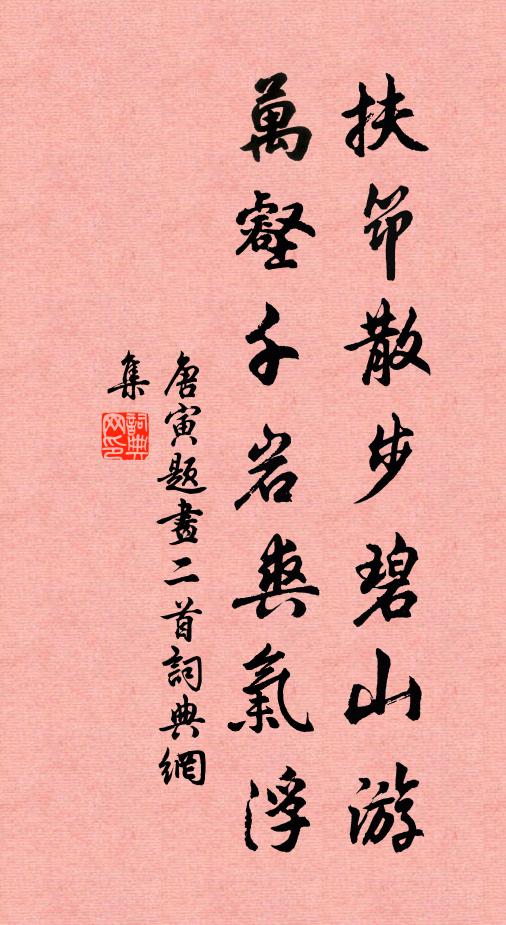 扶筇散步碧山游
萬壑千岩爽氣浮
唐寅題畫二首詞典網
集
詞典
网印